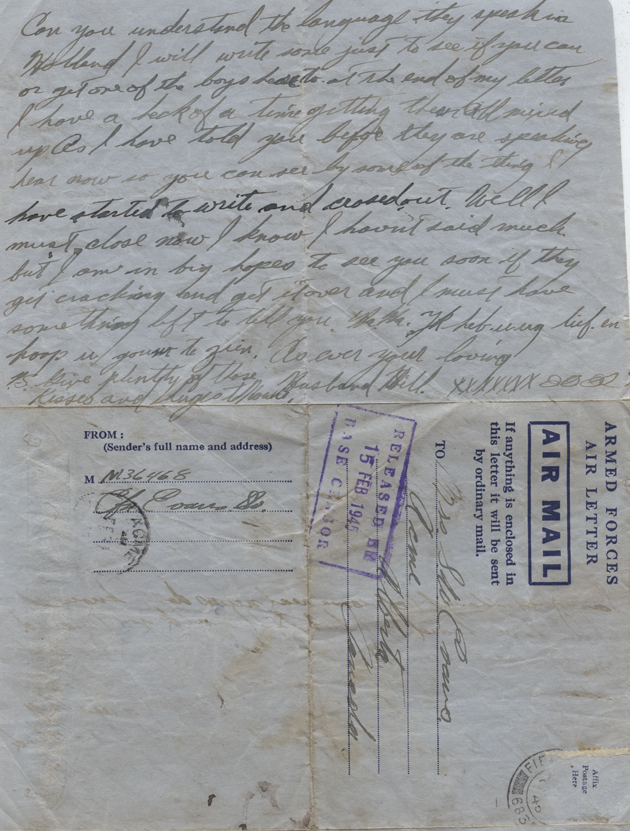 Can you understand the language they speak in
Holland I will write some just to see if you can
or get one of the boys to. at the end of my letter
I have a heck of a time getting them all mixed
up As I have told you before they are speaking
hear now so you can see by some of the thing I
have started to write and crosed out. Well I
must close now I know I havnt said much
but I am in big hopes to see you soon if they
get cracking and get it over and I must have
something left to tell you. Ik heb u lief. en
hoop u to zien. As ever your loving
Give plenty of love Husband Bill. XXXXXXX
kisses and hugs
FROM :
(Sender's full name and address)
M M36468
Evans
ACME
ARMED FORCES
AIR LETTER
AIR MAIL
If anything is enclosed in
this letter it will be sent
by ordinary mail.
TO Mrs Evans
Acme
Alberta
Canada.
RELEASED BY
15 FEB 1945
BASE CENSOR
Affix
Postage
Here
FIE
683